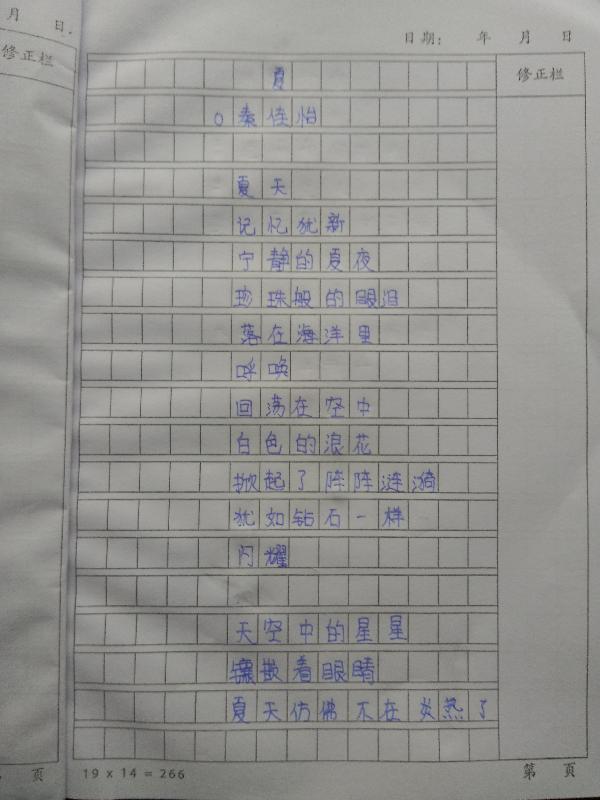 月 日.
修正栏
日期： 年 月 日
修正栏
夏
○秦佳怡
夏天
记忆犹新
宁静的夏夜
珍珠般的眼泪
落在海洋里
呼唤
回荡在空中
白色的浪花
掀起了阵阵涟漪
犹如钻石一样
闪耀
天空中的星星
镶嵌着眼睛
夏天仿佛不在炎热了
页
19 x 14 = 266
第 页